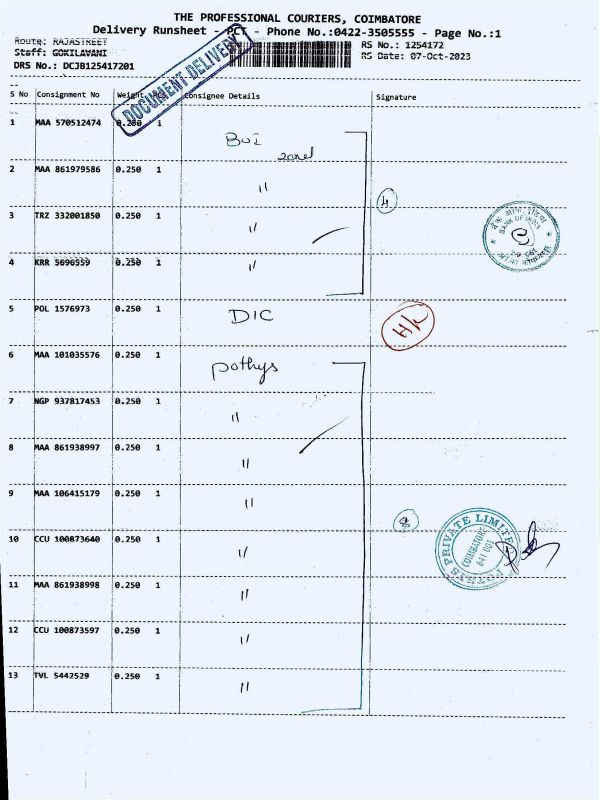 THE PROFESSIONAL COURIERS, COIMBATORE
Delivery Runsheet - PCT - Phone No.:0422-3505555 - Page No.:1
Route: RAJASTREET
RS No.: 1254172
Staff: GOKILAVANI
RS Date: 07-Oct-2023
DRS No.: DCJB125417201
DOCUMENT DELIVERY
S No Consignment No Weight Pcs Consignee Details Signature
1 MAA 570512474 0.250 1 BOI
zonel
2 MAA 861979586 0.250 1 "
4
3 TRZ 332001850 0.250 1 "
BANK OF INDIA
4 KRR 5696559 0.250 1 "
5 POL 1576973 0.250 1 DIC H/K
6 MAA 101035576 0.250 1 pothys
7 NGP 937817453 0.250 1 "
8 MAA 861938997 0.250 1 "
9 MAA 106415179 0.250 1 "
8
10 CCU 100873640 0.250 1 "
POTHYS PRIVATE LIMITED
COIMBATORE
641 001
11 MAA 861938998 0.250 1 "
12 CCU 100873597 0.250 1 "
13 TVL 5442529 0.250 1 "